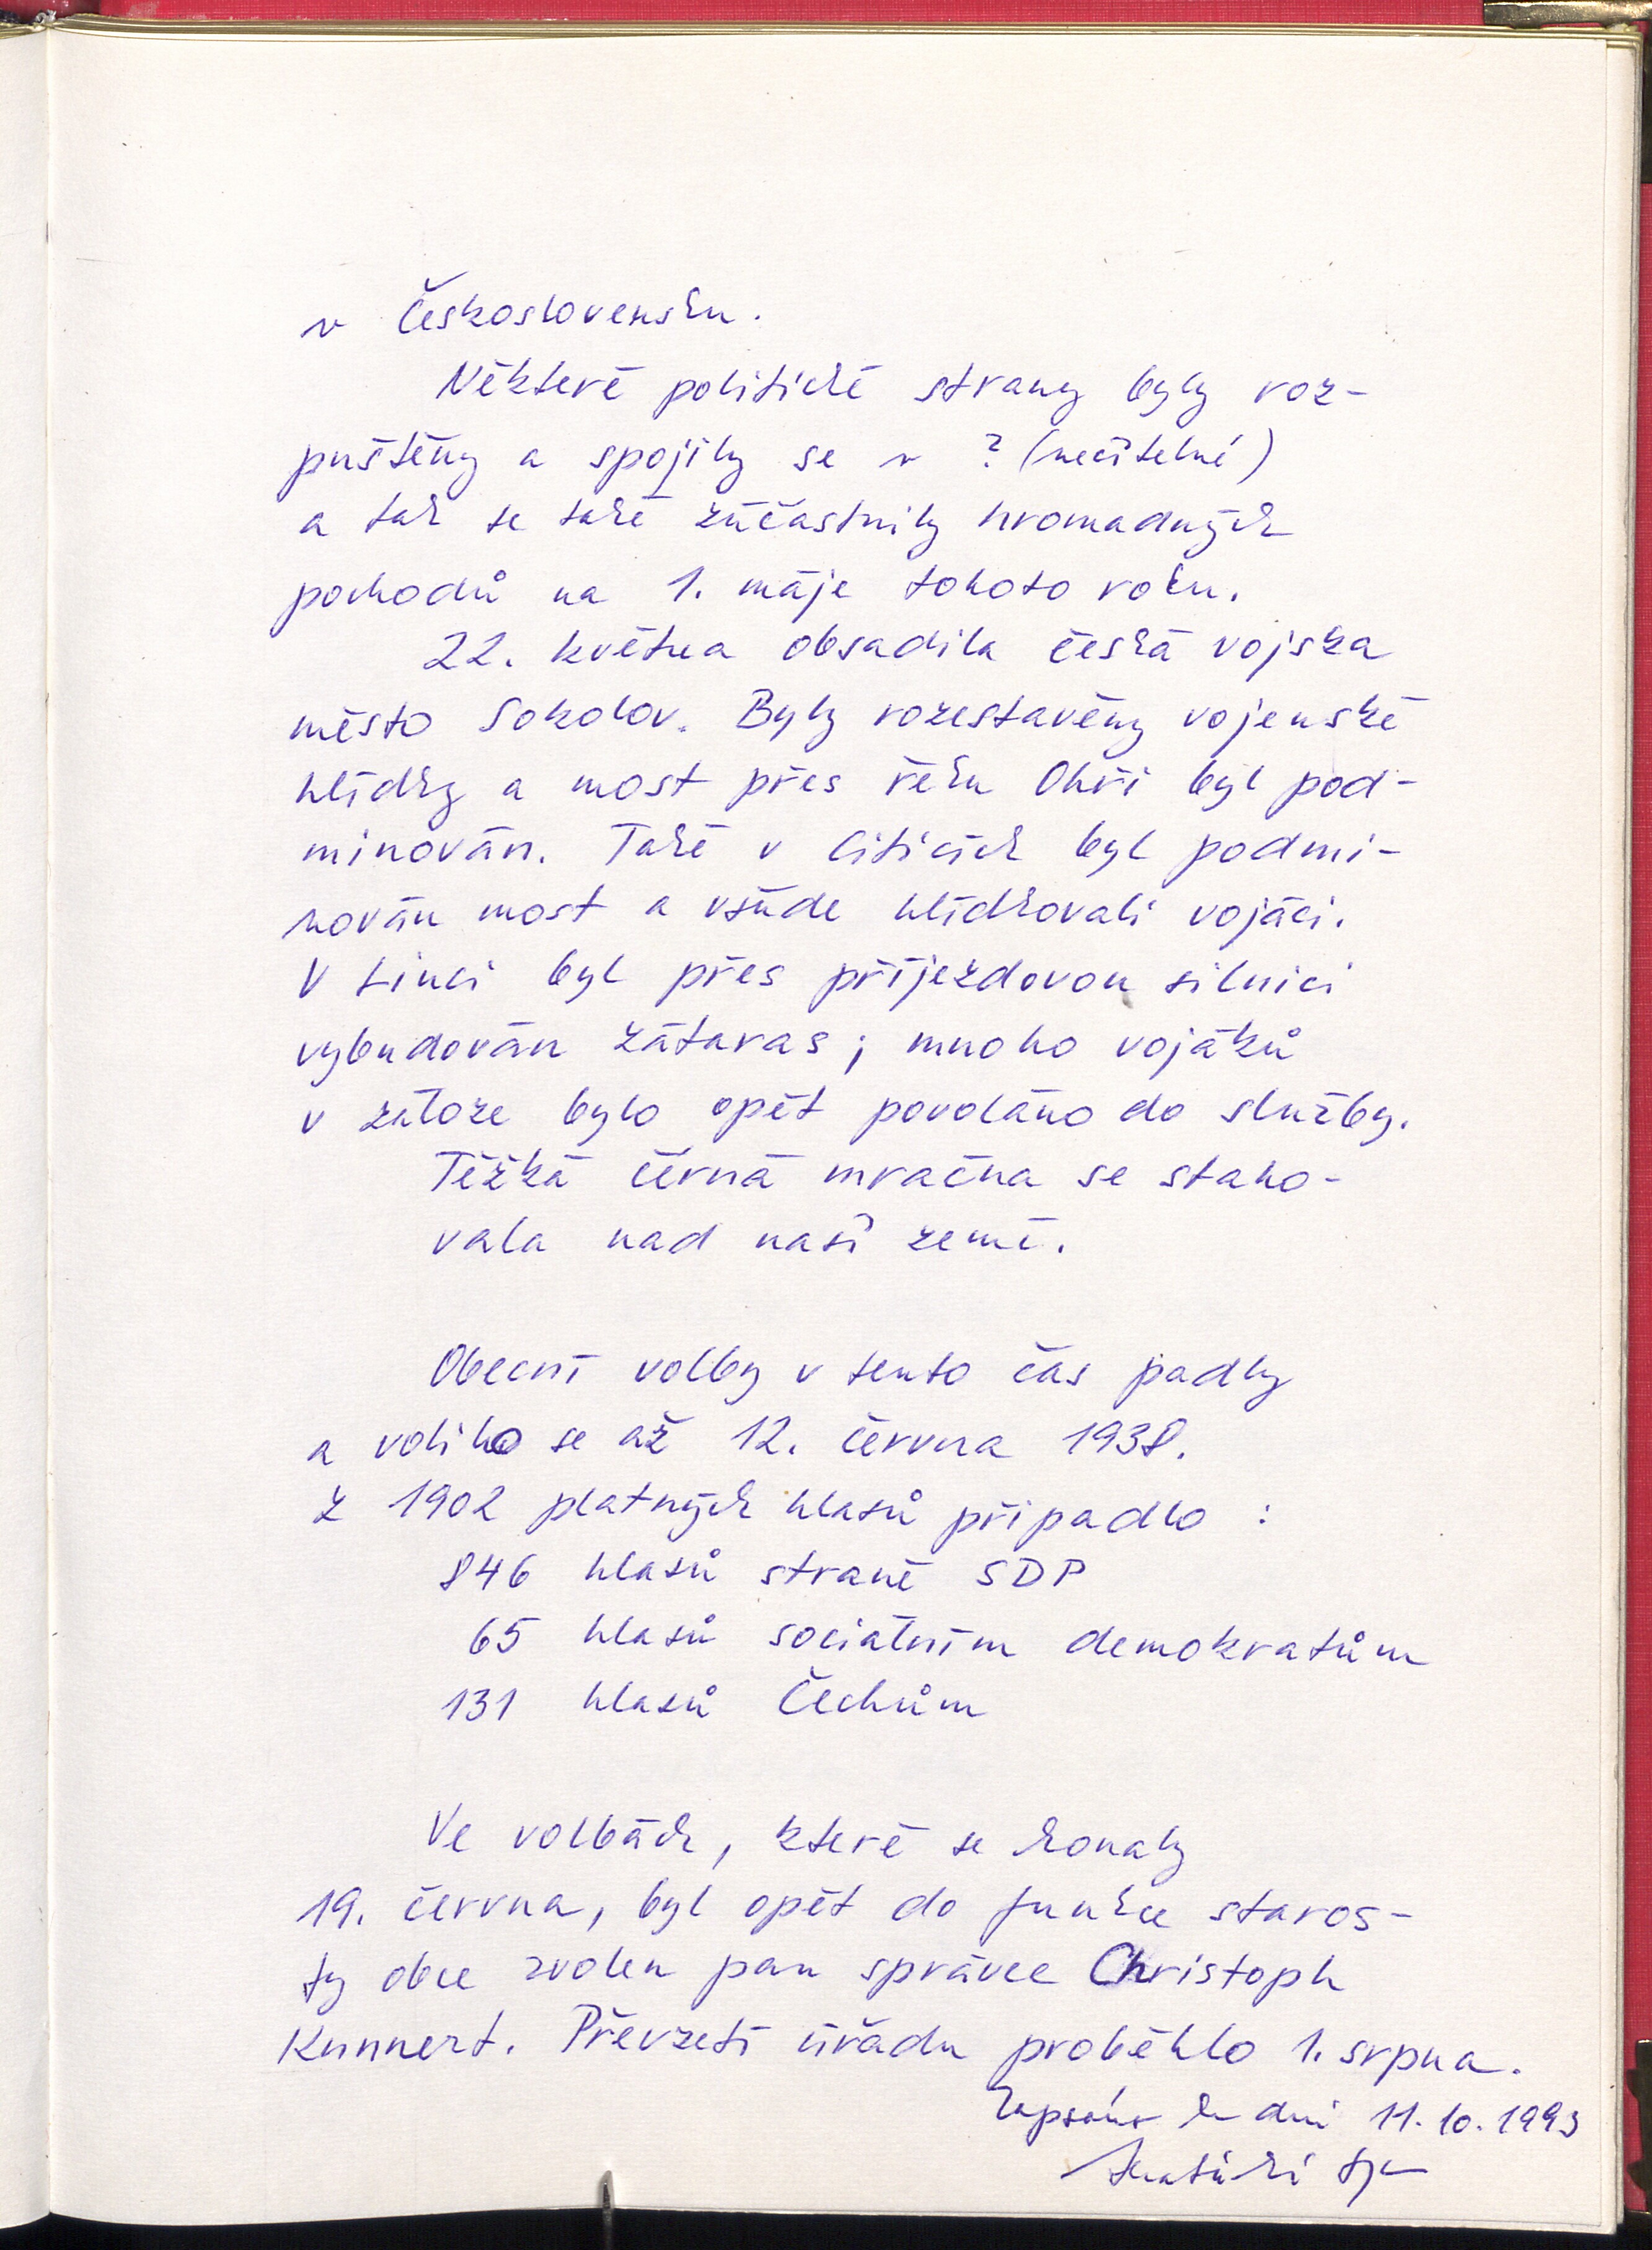 v Československu.
Některé politické strany byly roz-
puštěny a spojily se v ? (nečitelné)
a tak se také zúčastnily hromadných
pochodů na 1. máje tohoto roku.
22. května obsadila česká vojska
město Sokolov. Byly rozestavěny vojenské
hlídky a most přes řeku Ohři byl pod-
minován. Také v Citicích byl podmi-
nován most a všude hlídkovali vojáci.
V Linci byl přes příjezdovou silnici
vybudován zátaras; mnoho vojáků
v záloze bylo opět povoláno do služby.
Těžká černá mračna se staho-
vala nad naší zemí.
Obecní volby v tento čas padly
a volilo se až 12. června 1938.
Z 1902 platných hlasů připadlo :
846 hlasů straně SDP
65 hlasů sociálním demokratům
131 hlasů Čechům
Ve volbách, které se konaly
19. června, byl opět do funkce staros-
ty obce zvolen pan správce Christoph
Kunnert. Převzetí úřadu proběhlo 1. srpna.
Zapsáno ke dni 11.10.1993